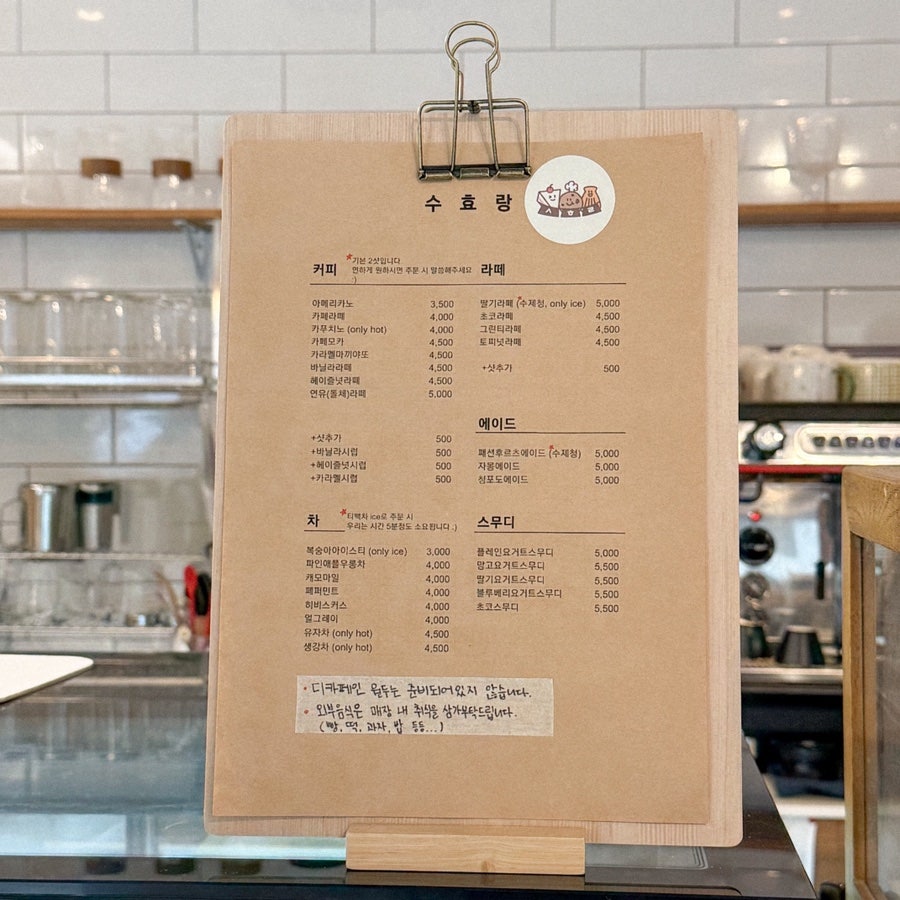 수 효 랑
커피
*기본 2샷입니다
연하게 원하시면 주문 시 말씀해주세요
:)
아메리카노 3,500
카페라떼 4,000
카푸치노 (only hot) 4,000
카페모카 4,500
카라멜마끼야또 4,500
바닐라라떼 4,500
헤이즐넛라떼 4,500
연유(돌체)라떼 5,000
+샷추가 500
+바닐라시럽 500
+헤이즐넛시럽 500
+카라멜시럽 500
라떼
딸기라떼 (*수제청, only ice) 5,000
초코라떼 4,500
그린티라떼 4,500
토피넛라떼 4,500
+샷추가 500
에이드
패션후르츠에이드 (*수제청) 5,000
자몽에이드 5,000
청포도에이드 5,000
차
*티백차 ice로 주문 시
우리는 시간 5분정도 소요됩니다 :)
복숭아아이스티 (only ice) 3,000
파인애플우롱차 4,000
캐모마일 4,000
페퍼민트 4,000
히비스커스 4,000
얼그레이 4,000
유자차 (only hot) 4,500
생강차 (only hot) 4,500
스무디
플레인요거트스무디 5,000
망고요거트스무디 5,500
딸기요거트스무디 5,500
블루베리요거트스무디 5,500
초코스무디 5,500
• 디카페인 원두는 준비되어있지 않습니다.
• 외부음식은 매장 내 취식을 삼가부탁드립니다.
(빵, 떡, 과자, 밥 등등...)